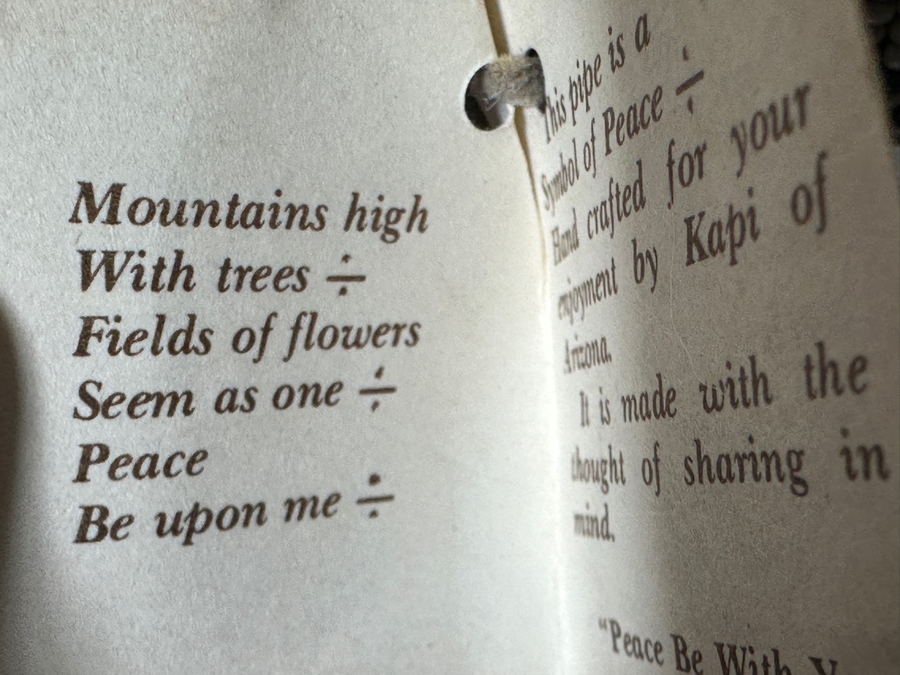 Mountains high
With trees ÷
Fields of flowers
Seem as one ÷
Peace
Be upon me ÷
This pipe is a
Symbol of Peace ÷
Hand crafted for your
enjoyment by Kapi of
Arizona.
It is made with the
thought of sharing in
mind.
"Peace Be With